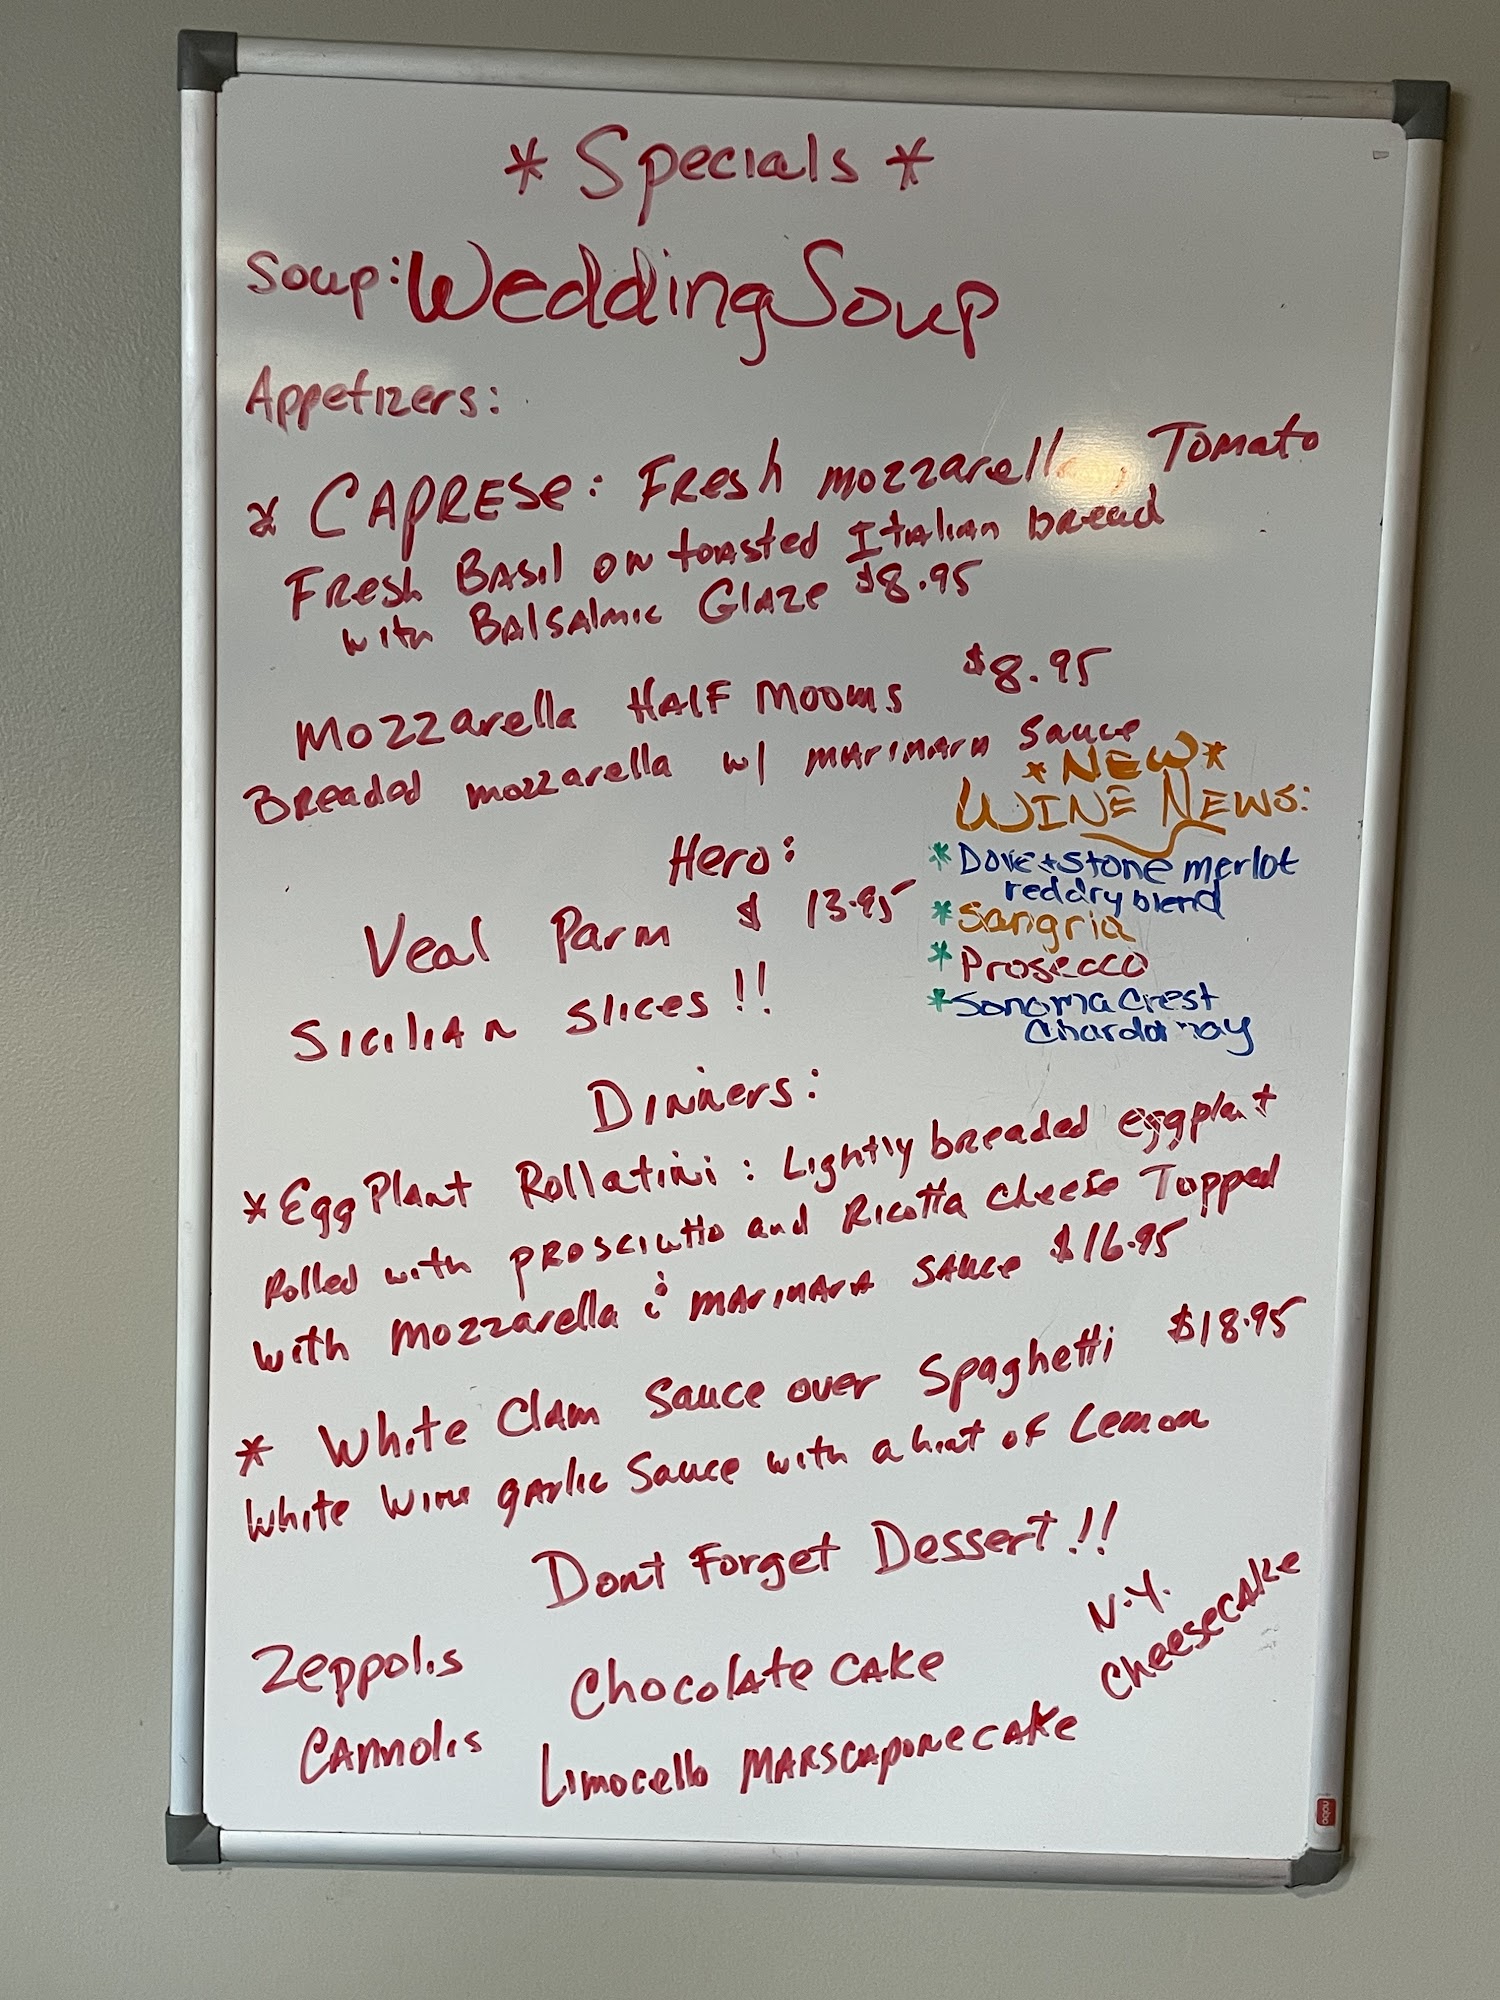 * Specials *
Soup: Wedding Soup
Appetizers:
* CAPRESE: Fresh mozzarella, Tomato
Fresh Basil on toasted Italian bread
with Balsalmic Glaze $8.95
Mozzarella Half Mooms $8.95
Breaded mozzarella w/ marinara sauce
Hero:
Veal Parm $ 13.95
Sicilian slices!!
*NEW*
WINE NEWS:
*Dove+Stone merlot
red dry blend
*Sangria
*Prosecco
*Sonoma Crest
Chardonnay
Dinners:
*EggPlant Rollatini: Lightly breaded eggplant
Rolled with prosciutto and Ricotta cheese Topped
with mozzarella & marinara sauce $16.95
* White Clam Sauce over Spaghetti $18.95
White Wine garlic Sauce with a hint of Lemon
Dont Forget Dessert!!
Zeppolis
Cannolis
Chocolate cake
Limocello MARSCAPONE CAKE
N.Y.
Cheesecake
nobo